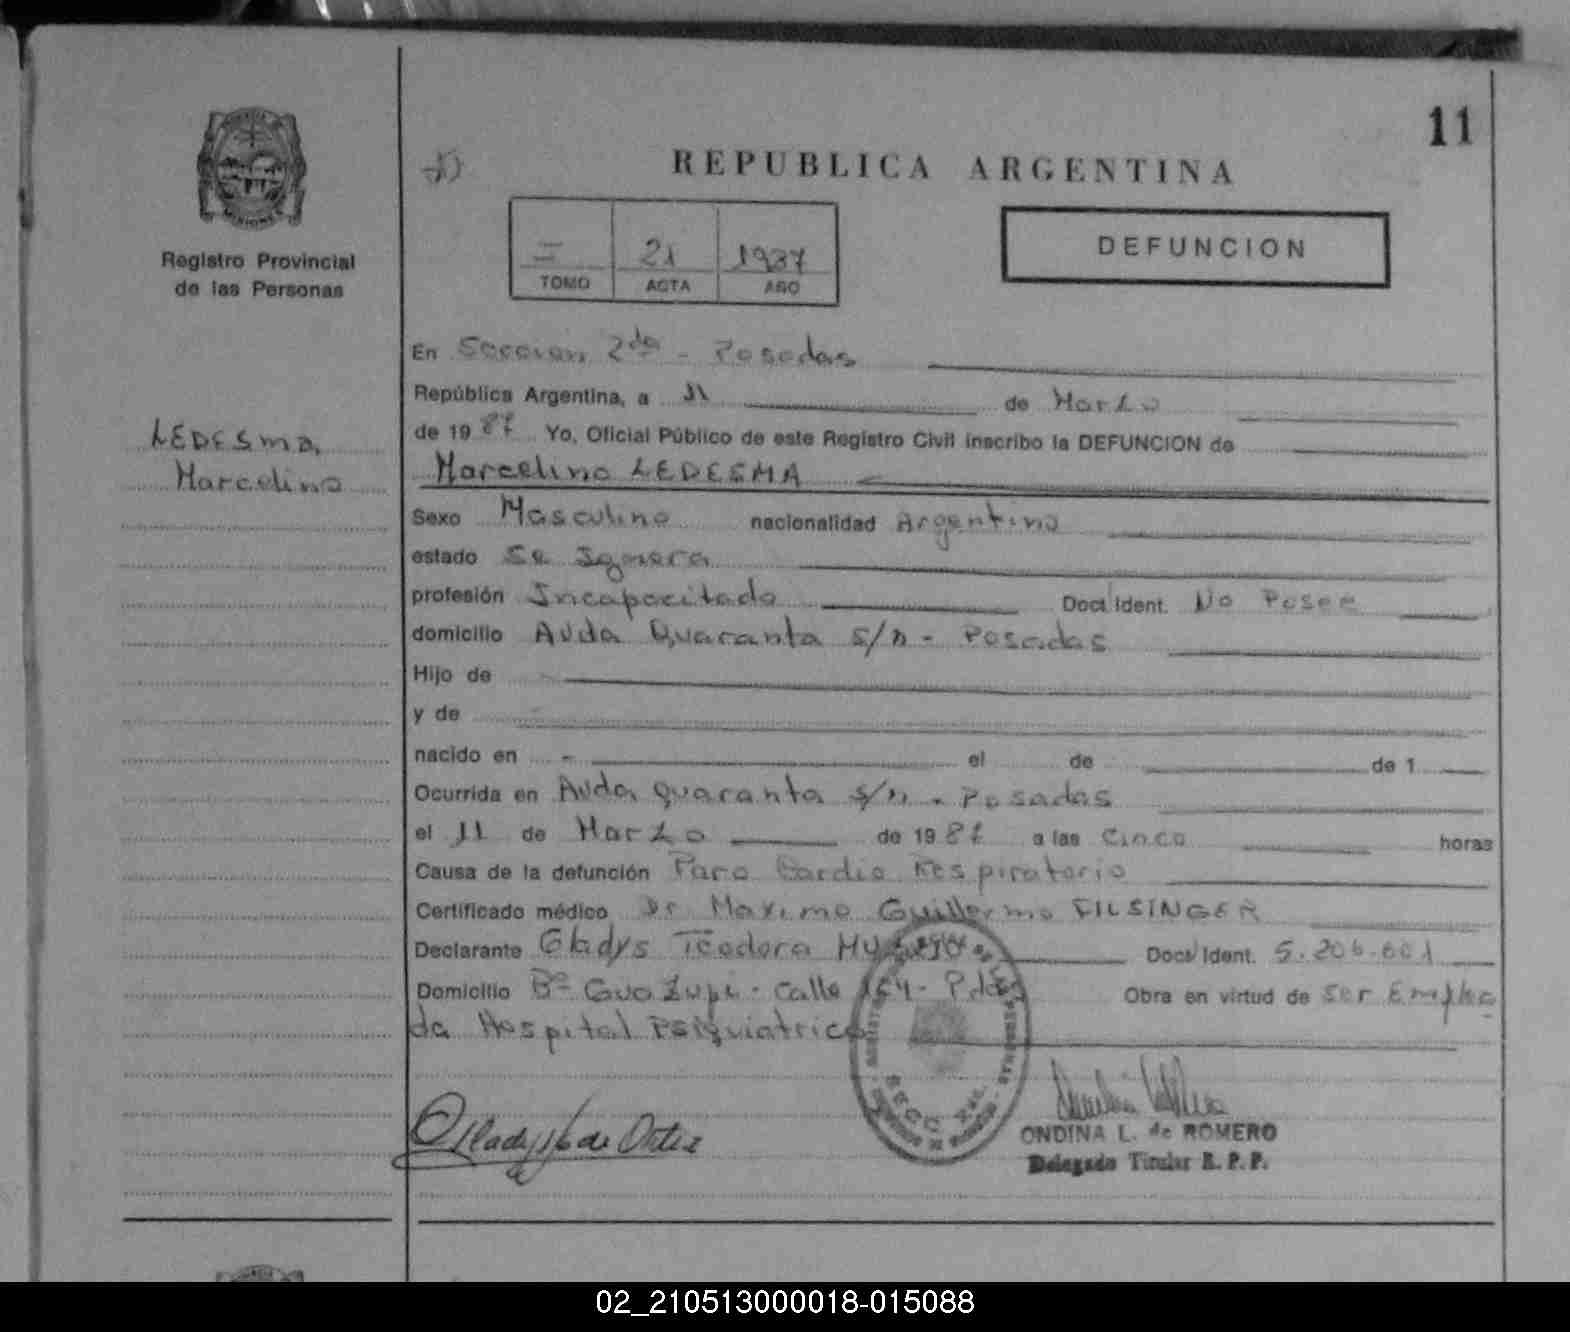 11
REPUBLICA ARGENTINA
II 21 1987
TOMO ACTA AÑO
DEFUNCION
MISIONES
Registro Provincial
de las Personas
LEDESMA,
Marcelino
En Seccion 2da - Posadas
República Argentina, a 11 de Marzo
de 1987 Yo, Oficial Público de este Registro Civil inscribo la DEFUNCION de
Marcelino LEDESMA
Sexo Masculino nacionalidad Argentino
estado Se Ignora
profesión Incapacitado Doct Ident. No Posee
domicilio Avda Quaranta s/n - Posadas
Hijo de
y de
nacido en - el de de 1
Ocurrida en Avda Quaranta s/n - Posadas
el 11 de Marzo de 1987 a las Cinco horas
Causa de la defunción Paro Cardio Respiratorio
Certificado médico Dr Maximo Guillermo FILSINGER
Declarante Gladys Teodora Doct Ident. 5.206.601
Domicilio Bº Guazupi - Calle 154 - Pdas Obra en virtud de ser Emplea
da Hospital Psiquiatrico
Gladys de Ortiz
ONDINA L. de ROMERO
Delegada Titular R. P. P.
02_210513000018-015088